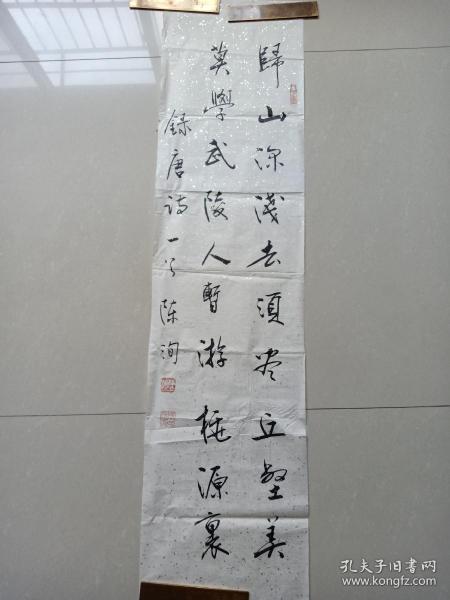 歸山深淺去須尽丘壑美
莫學武陵人暫游桃源裏
録唐诗一首陈洵
孔夫子旧书网
www.kongfz.com